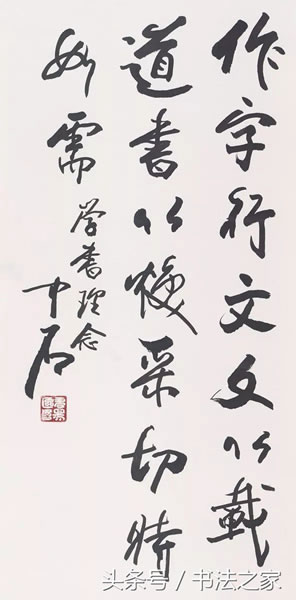 作字行文文以載
道書以焕采切時
如需
学書理念
中石
头条号 / 书法之家